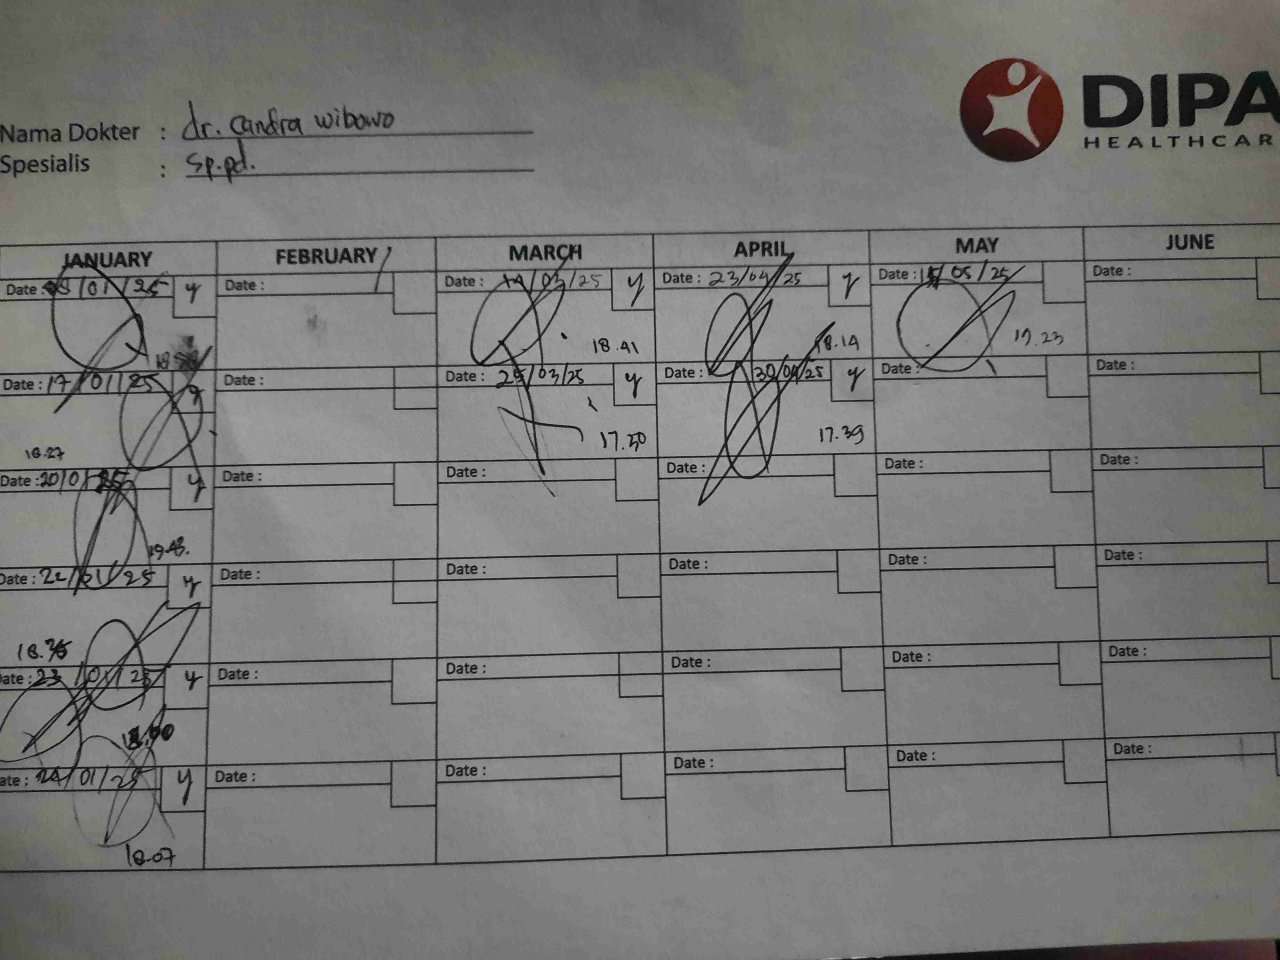 DIPA
HEALTHCAR
Nama Dokter : dr. Candra wibowo
Spesialis : Sp.pd.
JANUARY FEBRUARY MARCH APRIL MAY JUNE
Date: /01/25 y Date: Date: 19/03/25 y Date: 23/04/25 y Date: 15/05/25 Date:
18.41 18.19 17.23
Date: 17/01/25 y Date: Date: 25/03/25 y Date: 30/04/25 y Date: Date:
18.27 17.50 17.39
Date: 20/01/25 y Date: Date: Date: Date: Date:
19.43.
Date: 22/01/25 y Date: Date: Date: Date: Date:
18.35
Date: 23/01/25 y Date: Date: Date: Date: Date:
ate: 24/01/25 y Date: Date: Date: Date: Date:
18.07